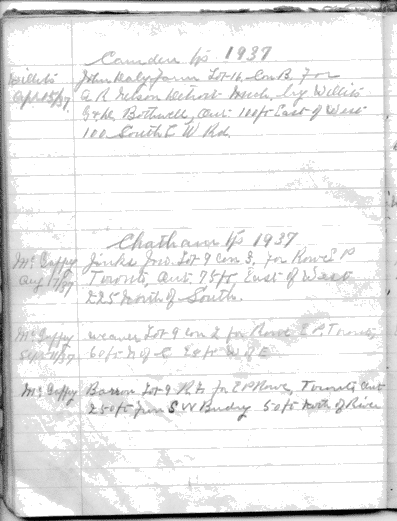 Camden Tp 1937
Willits John Daly farm Lot 16 Con B. For
Apr 15/37 A R Nelson Detroit Mich, by Willits
Bothwell, Ont. 100 ft East of West
100 South C W Rd.
Chatham Tp 1937
McGaffy Jinks Lot 9 Con 3, for Rowe E P
Aug 17/37 Toronto, Ont. 75 ft East of West
225 North of South.
McGaffy Weaver Lot 9 Con 2 for Rowe E P, Toronto,
Sept 60 ft N of
McGaffy Barron Lot 9 for E P Rowe, Toronto Ont
250 ft from S W Bndry 50 ft North of River